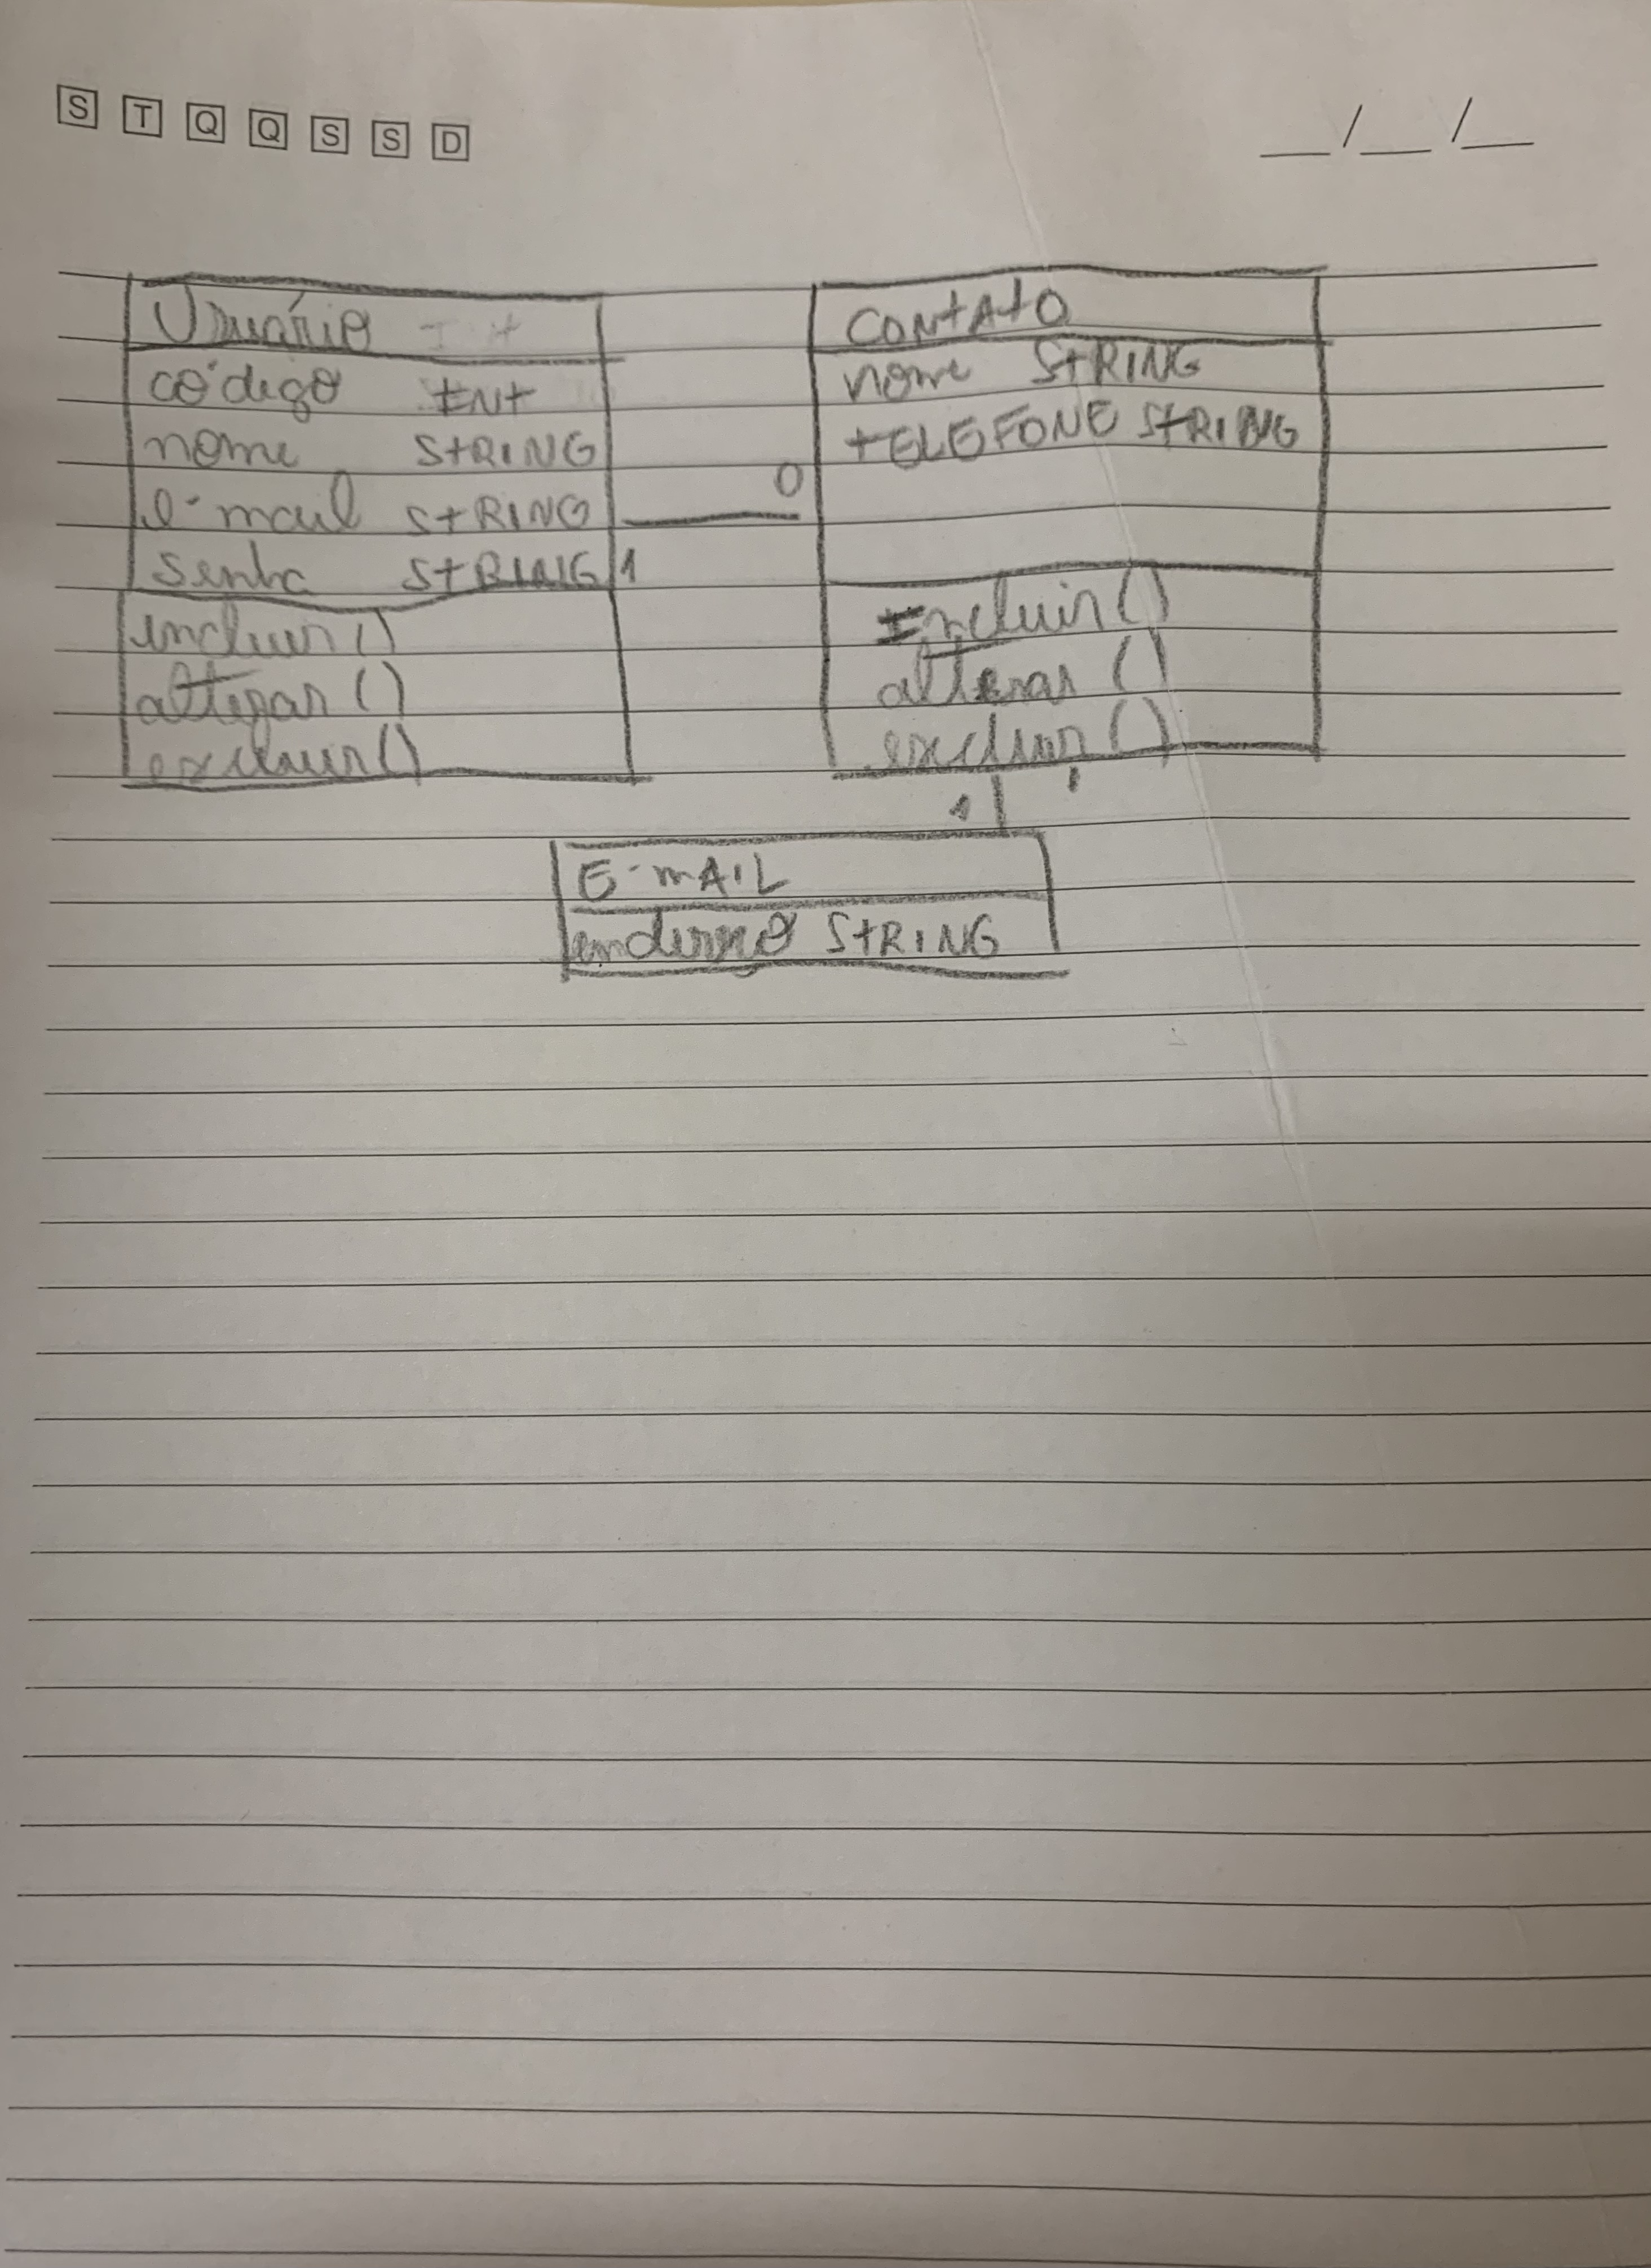 S T Q Q S S D
__/__/__
Usuário
código INt
nome StRING
e-mail StRING
senha StRING 1
incluir ()
alterar ()
excluir ()
0
CONtAtO
nome StRING
tELEFONE StRING
Incluir ()
alterar ()
excluir ()
1
E-mAIL
endereço StRING